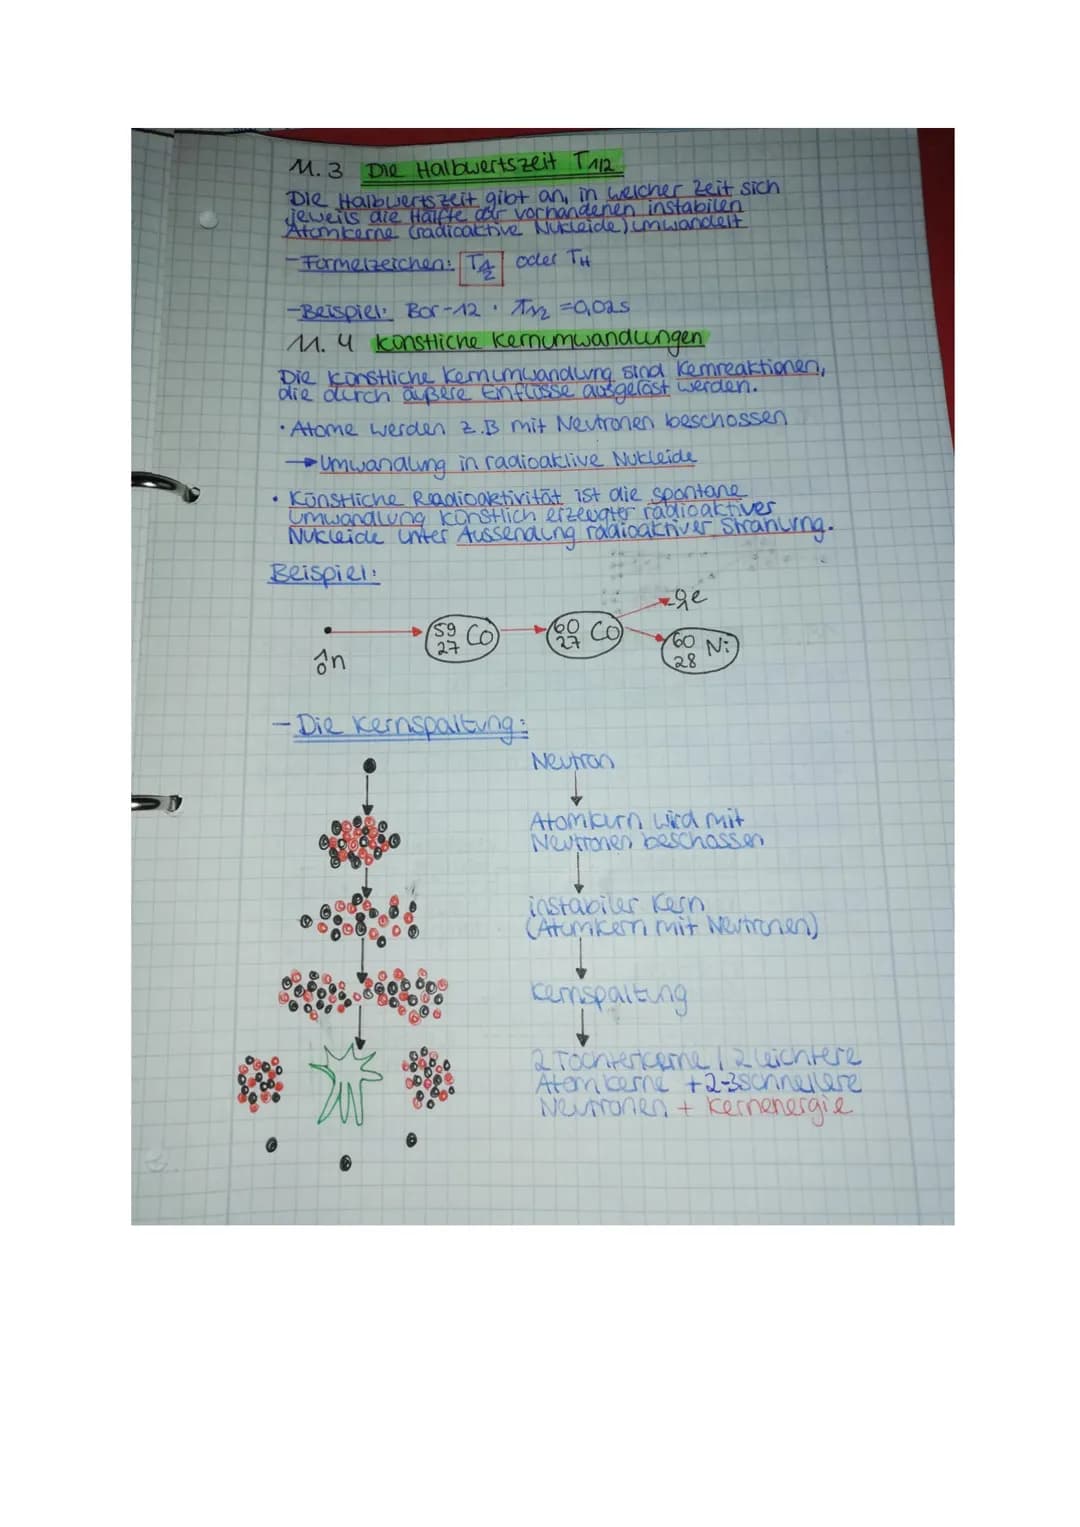 11.3 Die Halbwertszeit T1/2
Die Halbwertszeit gibt an, in welcher Zeit sich
jeweils die Hälfte der vorhandenen instabilen
Atomkerne (radioaktive Nukleide) umwandelt
- Formelzeichen: T1/2 oder TH
- Beispiel: Bor-12 · T1/2 = 0,02s
11.4 künstliche Kernumwandlungen
Die künstliche Kernumwandlung sind Kernreaktionen,
die durch äußere Einflüsse ausgelöst werden.
· Atome werden z.B mit Neutronen beschossen
→ Umwandlung in radioaktive Nukleide
· Künstliche Radioaktivität ist die spontane
Umwandlung künstlich erzeugter radioaktiver
Nukleide unter Aussendung radioaktiver Strahlung.
Beispiel:
0 -1 e
1 0 n 59 27 Co 60 27 Co 60 28 Ni
- Die Kernspaltung:
Neutron
Atomkern wird mit
Neutronen beschossen
instabiler Kern
(Atomkern mit Neutronen)
Kernspaltung
2 Tochterkerne / 2 leichtere
Atomkerne + 2-3 schnellere
Neutronen + Kernenergie